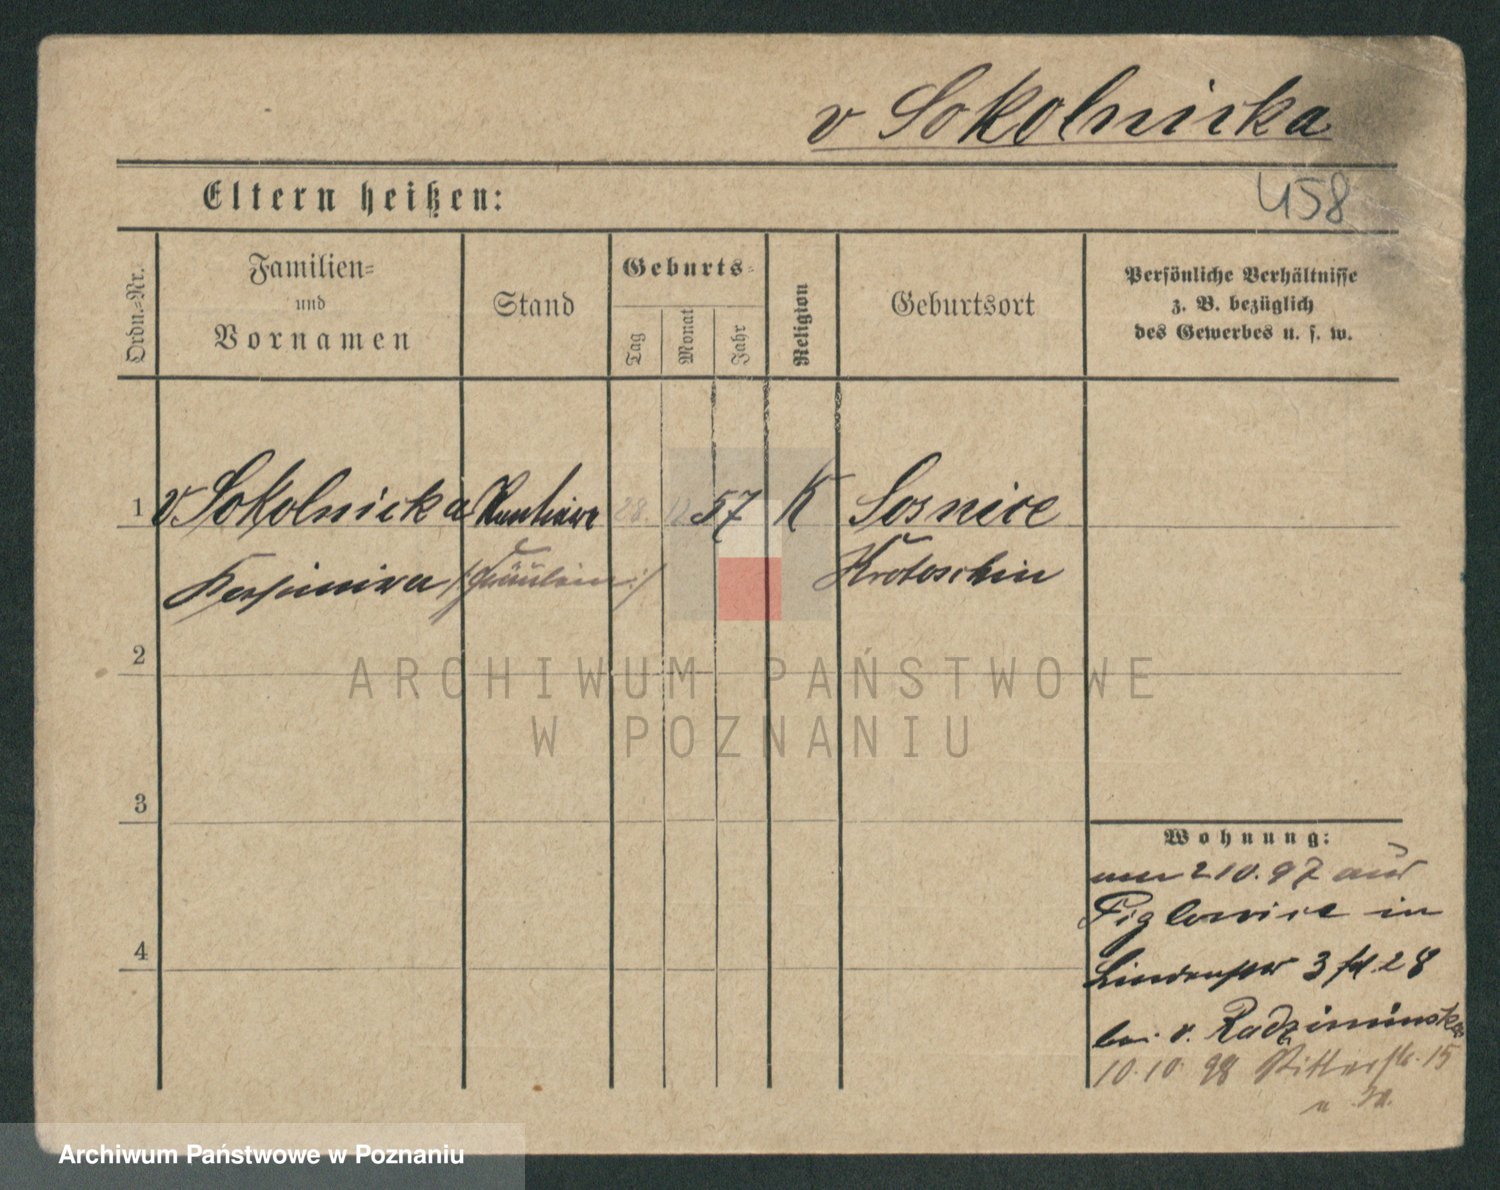 v Sokolnicka
Eltern heißen:
458
Ordn.=Nr.
Familien=
und
Vornamen
Stand
Geburts=
Tag
Monat
Jahr
Religion
Geburtsort
Persönliche Verhältnisse
z. B. bezüglich
des Gewerbes u. s. w.
1 v Sokolnicka Rentiere 28. 57 K Sosnice
Kasimira /: Fräulein :/ Krotoschin
2
ARCHIWUM PAŃSTWOWE
W POZNANIU
3
Wohnung:
2 10. 97 aus
Figlowice in
4
Lindenstr 3 28
bei v. Radziminska
10.10. 98 Ritterstr. 15
Archiwum Państwowe w Poznaniu